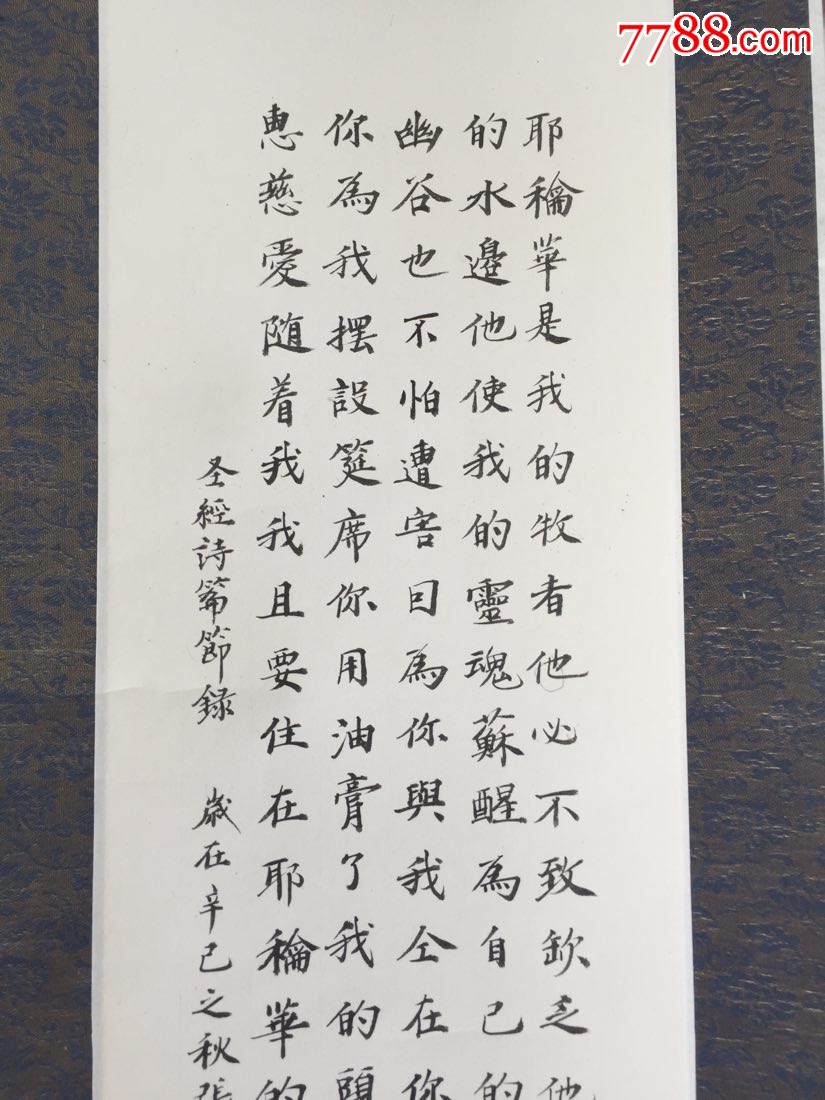 7788.com
耶龢華是我的牧者他必不致缺乏他
的水邊他使我的靈魂蘇醒為自己的
幽谷也不怕遭害囙為你與我仝在你
你為我摆設筵席你用油膏了我的頭
恵慈愛随着我我且要住在耶龢華的
圣經詩篇節録 歲在辛巳之秋張